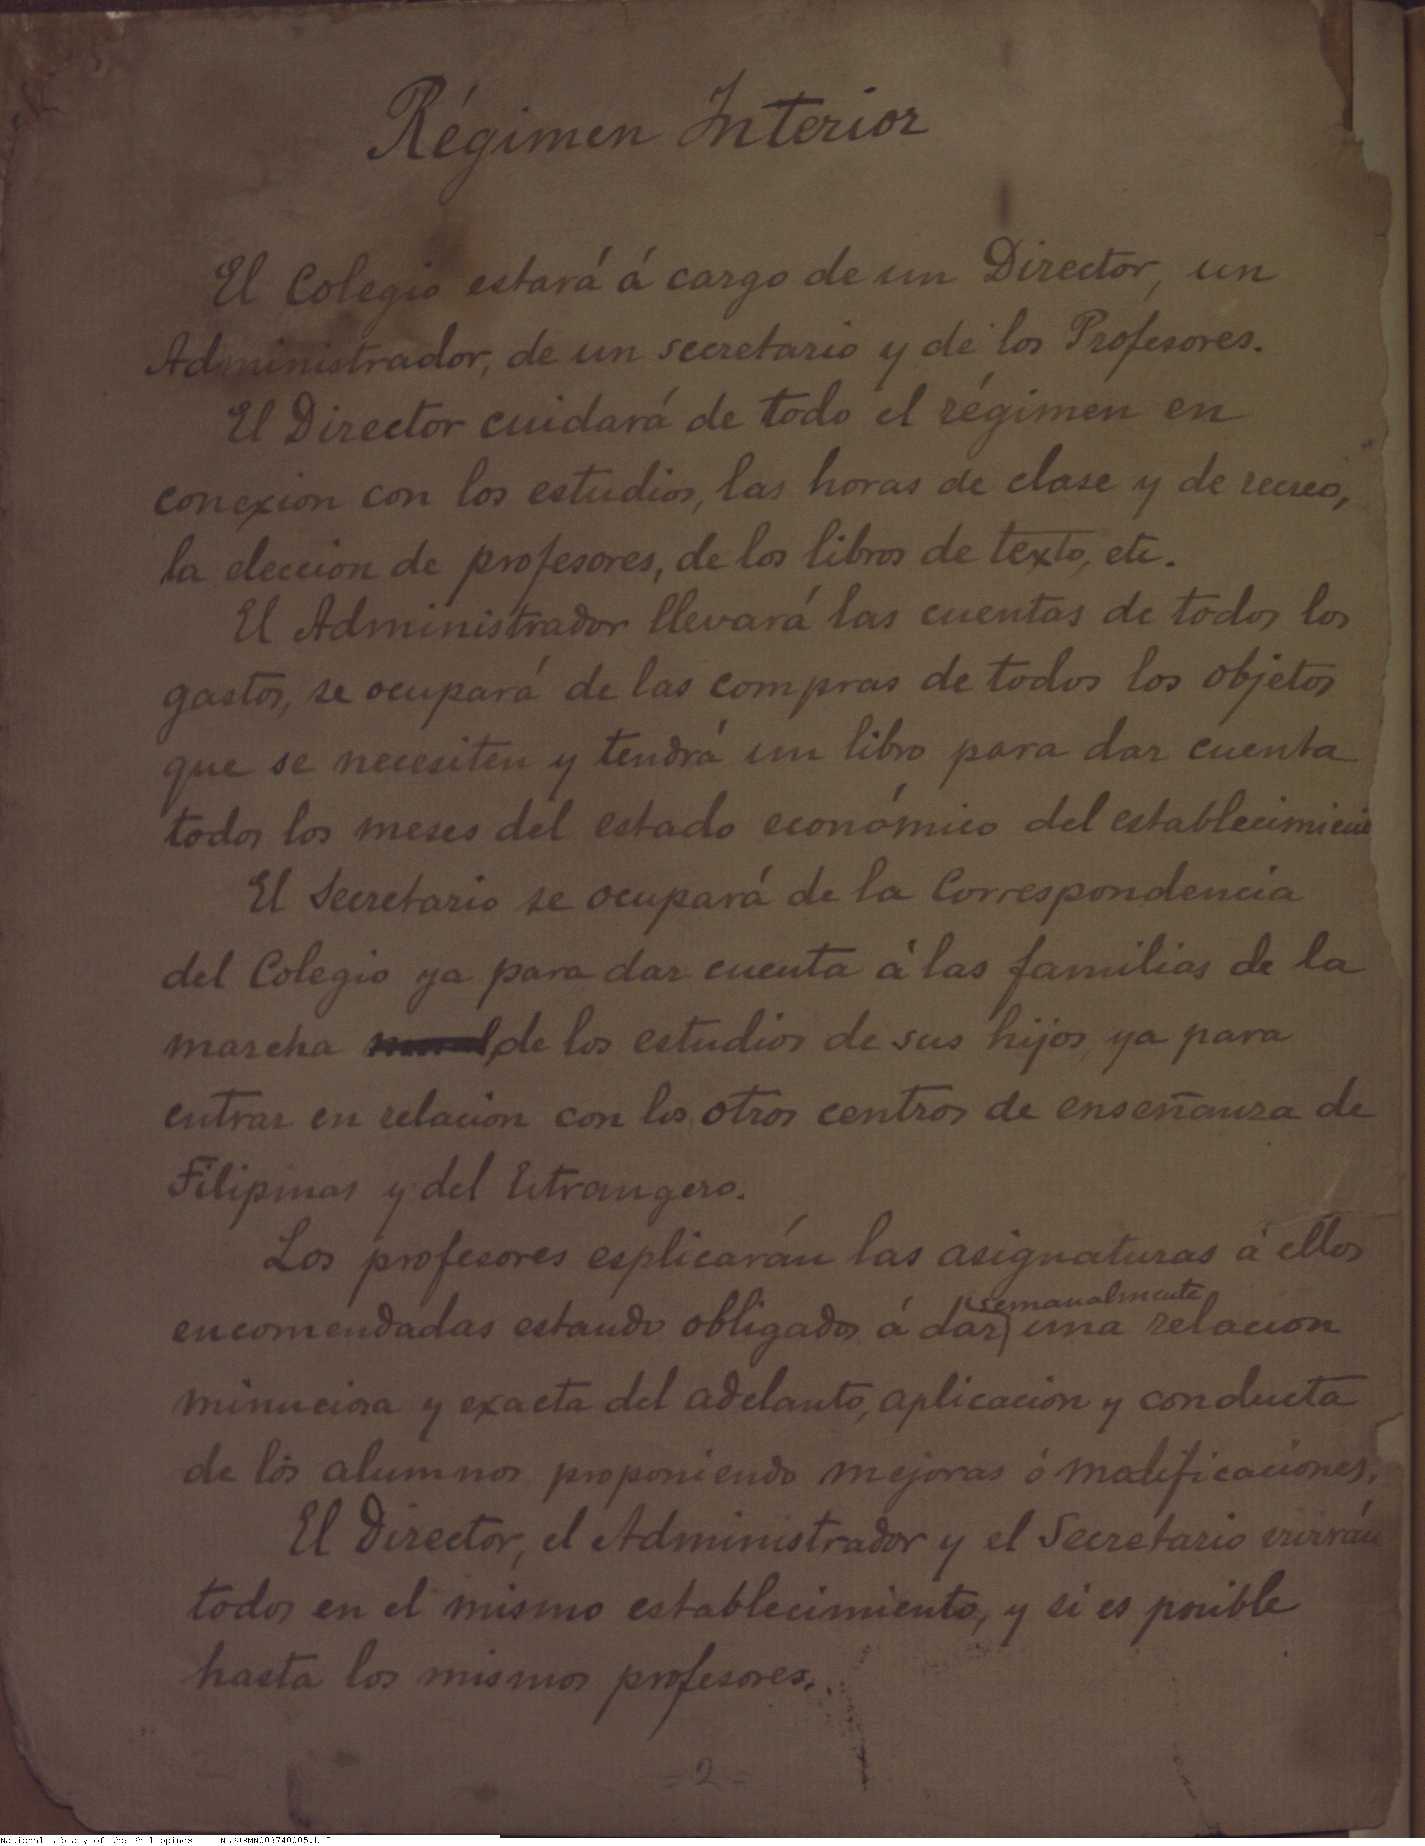 Régimen Interior
El Colegio estará á cargo de un Director, un
Administrador, de un secretario y de los Profesores.
El Director cuidará de todo el régimen en
conexion con los estudios, las horas de clase y de recreo,
la eleccion de profesores, de los libros de texto, etc.
El Administrador llevará las cuentas de todos los
gastos, se ocupará de las compras de todos los objetos
que se necesiten y tendrá un libro para dar cuenta
todos los meses del estado económico del establecimien
El Secretario se ocupará de la Correspondencia
del Colegio ya para dar cuenta á las familias de la
marcha de los estudios de sus hijos, ya para
entrar en relacion con los otros centros de enseñanza de
Filipinas y del Estrangero.
Los profesores esplicarán las asignaturas á ellos
semanalmente
encomendadas estando obligados á dar una relacion
minuciosa y exacta del adelanto, aplicacion y conducta
de los alumnos proponiendo mejoras ó modificaciones.
El Director, el Administrador y el Secretario vivirán
todos en el mismo establecimiento, y si es posible
hasta los mismos profesores.
- 2 -
National Library of the Philippines